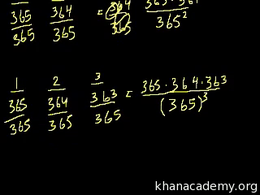 365/365 364/365 = 364/365 365·36/365²
1 2 3
365/365 364/365 363/365 = 365·364·363/(365)³
khanacademy.org